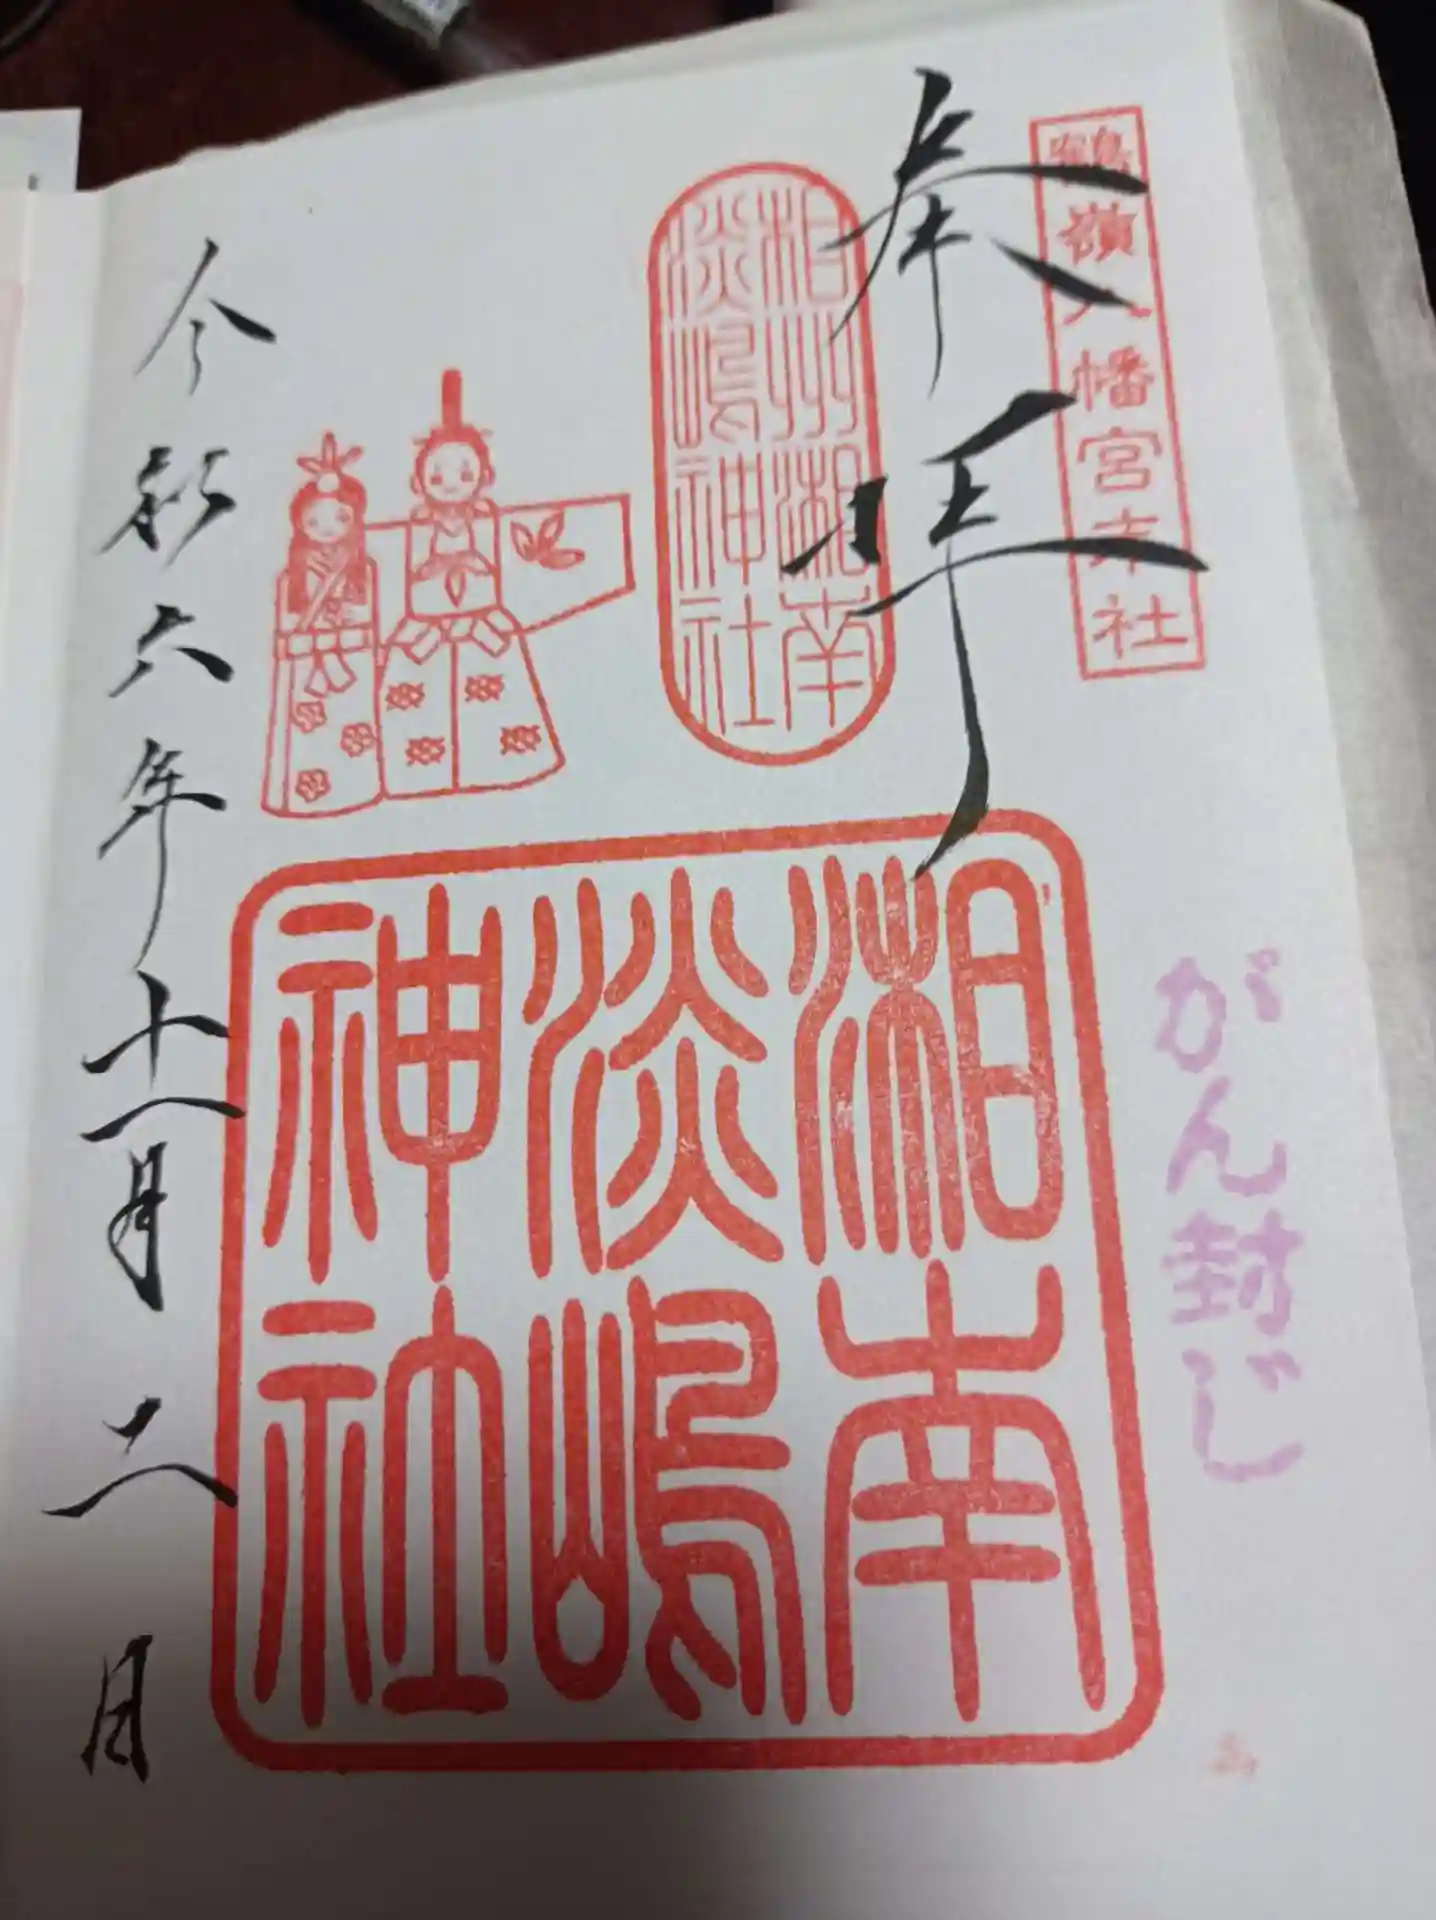 鶴嶺八幡宮末社
がん封じ
奉拝
相州湘南
淡嶋神社
湘南
淡嶋
神社
令和六年十一月二日